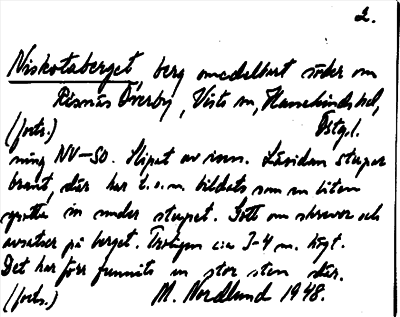 2.
Niskotaberget, berg omedelbart söder om
Risnäs Överby, Västra m, Hanekinds hd,
(forts.) Östgl.
ning NV–SO. Slipat av isen. Läsidan stupar
brant, där har t.o.m. bildats som en liten
grotta in under stupet. Gott om skrevor och
avsatser på berget. Troligen c:a 3-4 m. högt.
Det har förr funnits en stor sten där.
(forts.) M. Nordlund 1948.